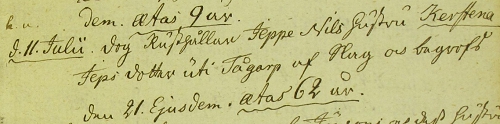 dem. ætas 9 år.
d. 11. Julii. dog Rusthållar Jeppe Nils hustru Kerstena
Jeps dotter uti Tågarp af Slag os begrofs
den 21. Ejusdem. ætas 62 år.